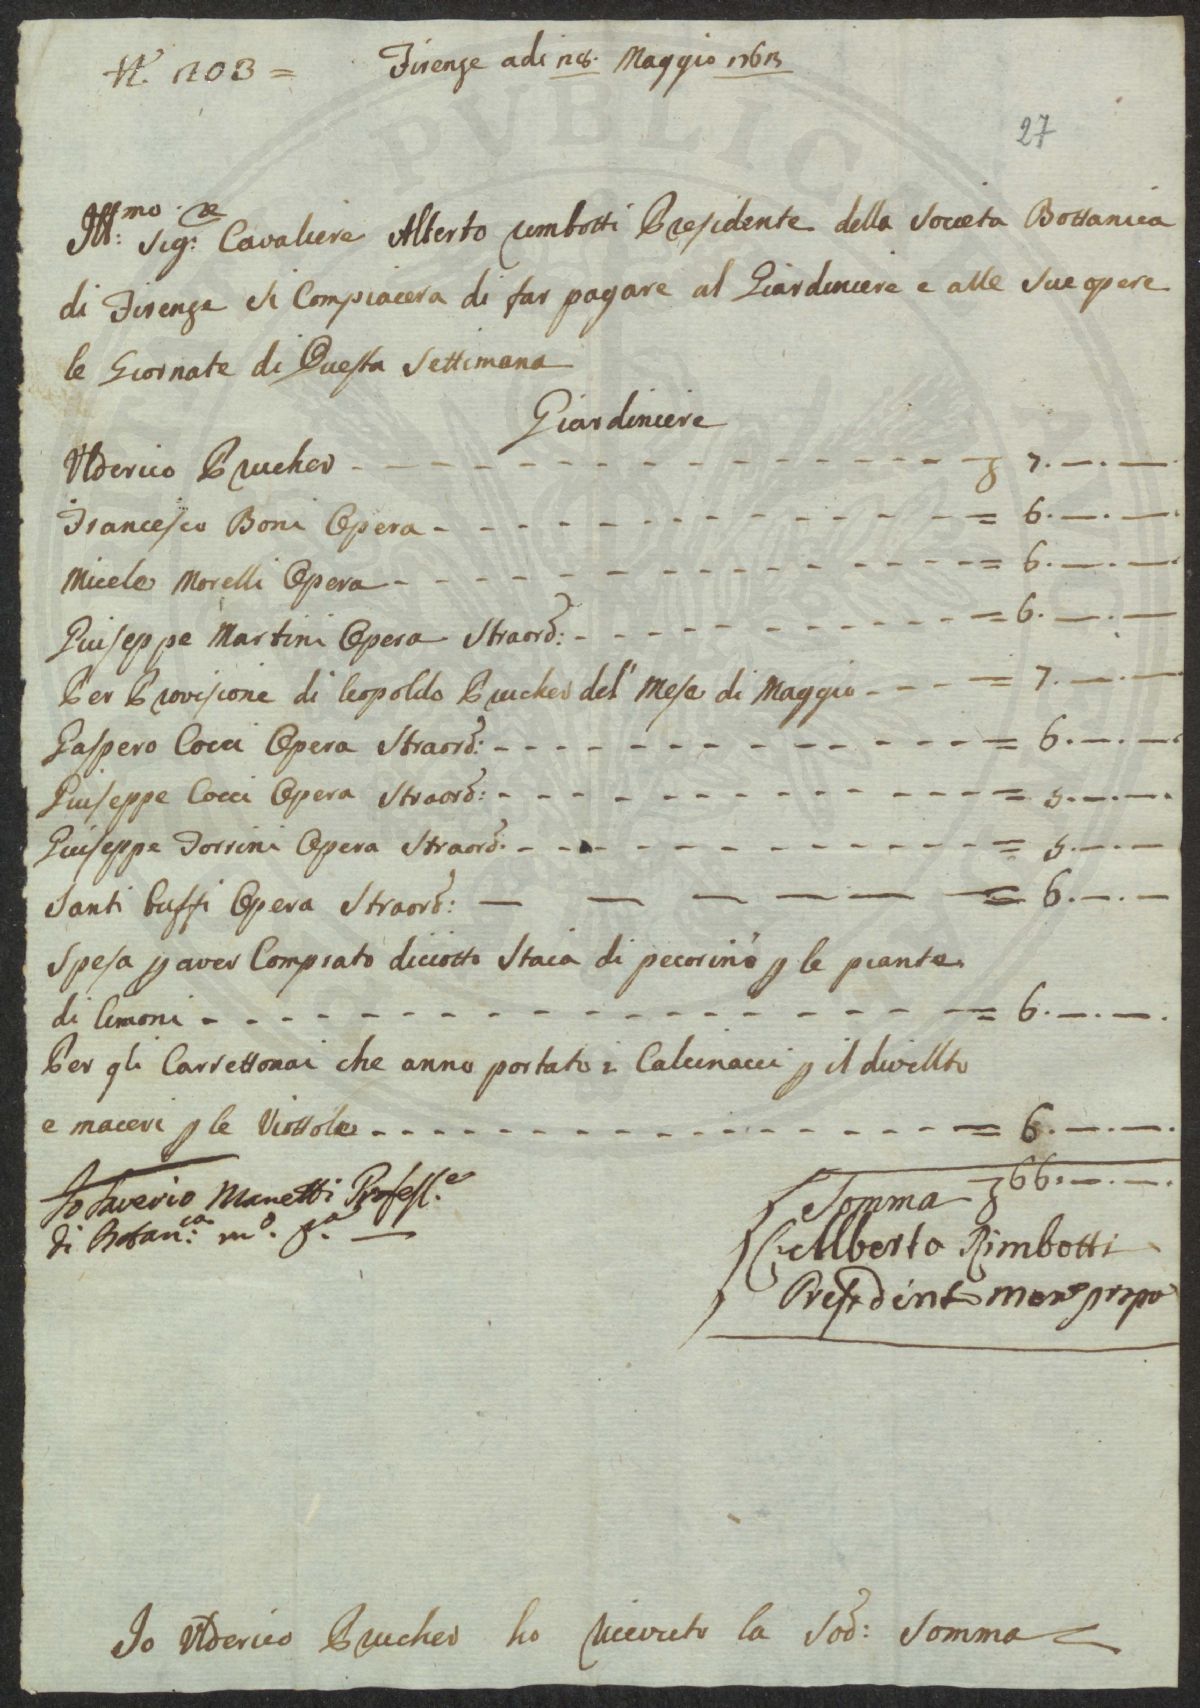 N. 1203 =
Firenze adi 28. Maggio 1763
27
Ill:mo Sig:re Cavaliere Alberto Rimbotti Presidente della Società Bottanica
di Firenze si Compiacera di far pagare al Giardiniere e alle sue opere
le Giornate di Questa Settimana
Giardiniere
Ulderico Prucher - - - 7. — . —
Francesco Boni Opera - - - = 6. — . —
Micele Morelli Opera - - - = 6. — . —
Giuseppe Martini Opera Straord: - - - = 6. — . —
Per Provisione di leopoldo Prucher del' Mese di Maggio - - - = 7. — . —
Gaspero Cocci Opera Straord: - - - = 6. — . —
Giuseppe Cocci Opera Straord: - - - = 5. — . —
Giuseppe Torrini Opera Straord: - - - = 5. — . —
Santi buffi Opera Straord: — — — = 6. — . —
Spesa p aver Comprato diciotto Staia di pecorino p le piante
di limoni - - - = 6. — . —
Per gli Carrettonai che anno portato i Calcinacci p il divellto
e maceri p le Viottole - - - = 6. — . —
Somma 66. — . —
Io Saverio Manetti Profess.e
di Botan:ca m.o p.a
C. Alberto Rimbotti
Presidente
Io Ulderico Prucher ho ricevuto la Sod: Somma